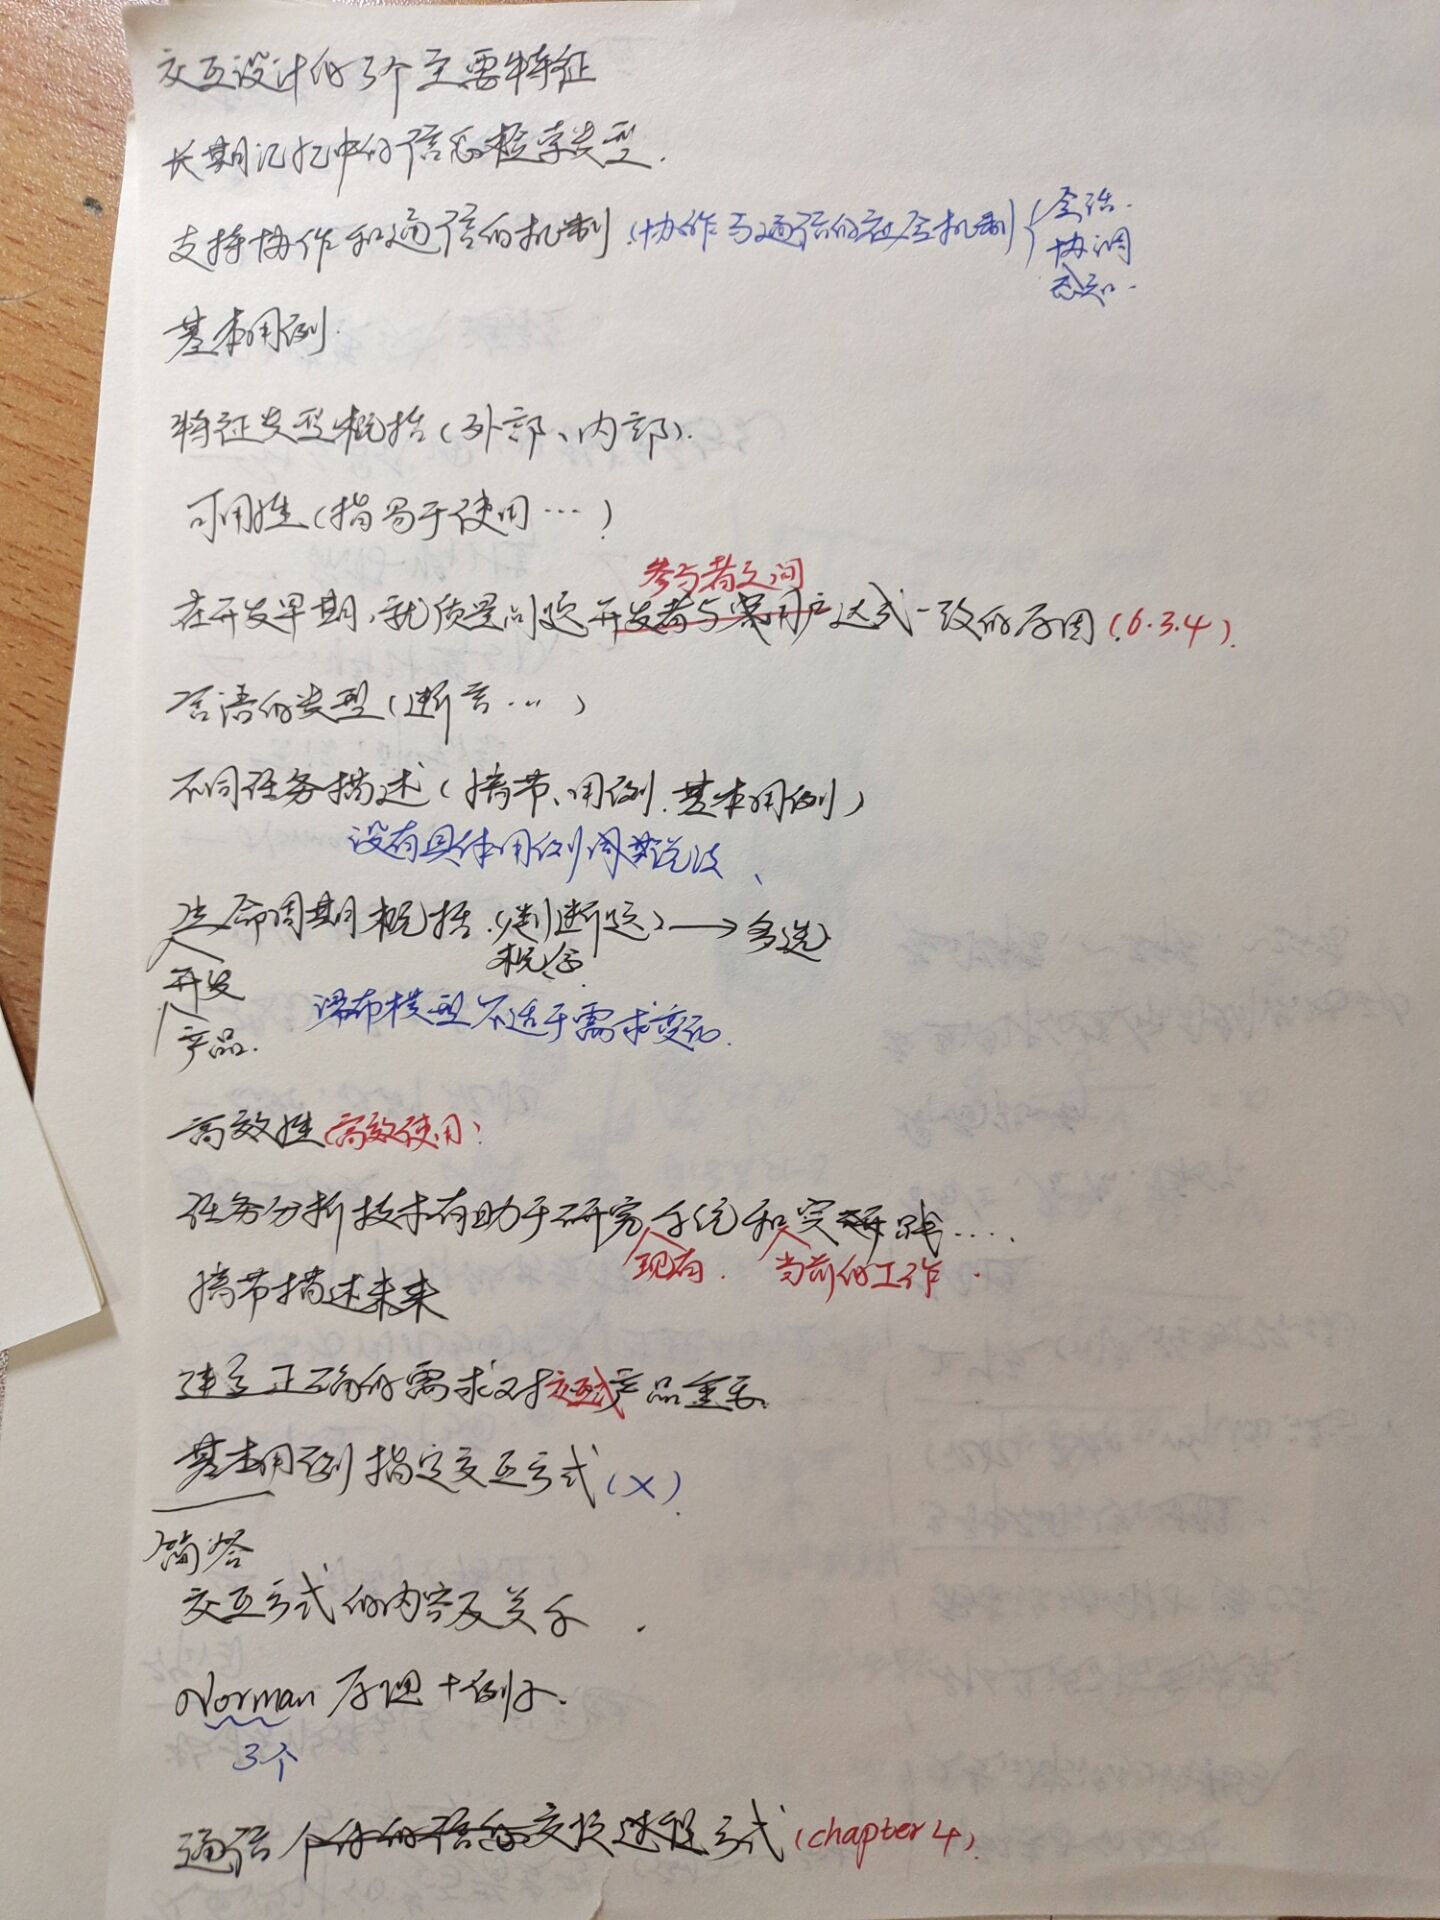 交互设计的3个主要特征
长期记忆中的信息检索类型.
支持协作和通信的机制(协作与通信的社会机制){会话.
协调
感知.
基本用例.
特征类型概括(外部、内部).
可用性(指易于使用…)
参与者之间
在开发早期,就质量问题开发者与客用户达成一致的原因(6.3.4).
言语的类型(断言…)
不同任务描述(情节、用例.基本用例)
没有具体用例周期说法、
生命周期概括.(判断题)→多选
概念.
开发
产品.
瀑布模型不适于需求变动.
高效性(高效使用)
任务分析技术有助于研究系统和实践....
现有. 当前的工作.
情节描述未来
建立正确的需求对交互式产品重要.
基本用例指定交互方式(X).
简答
交互方式的内容及关系.
Norman 原理+例子.
3个
通信个体的信息交换过程方式(chapter 4)